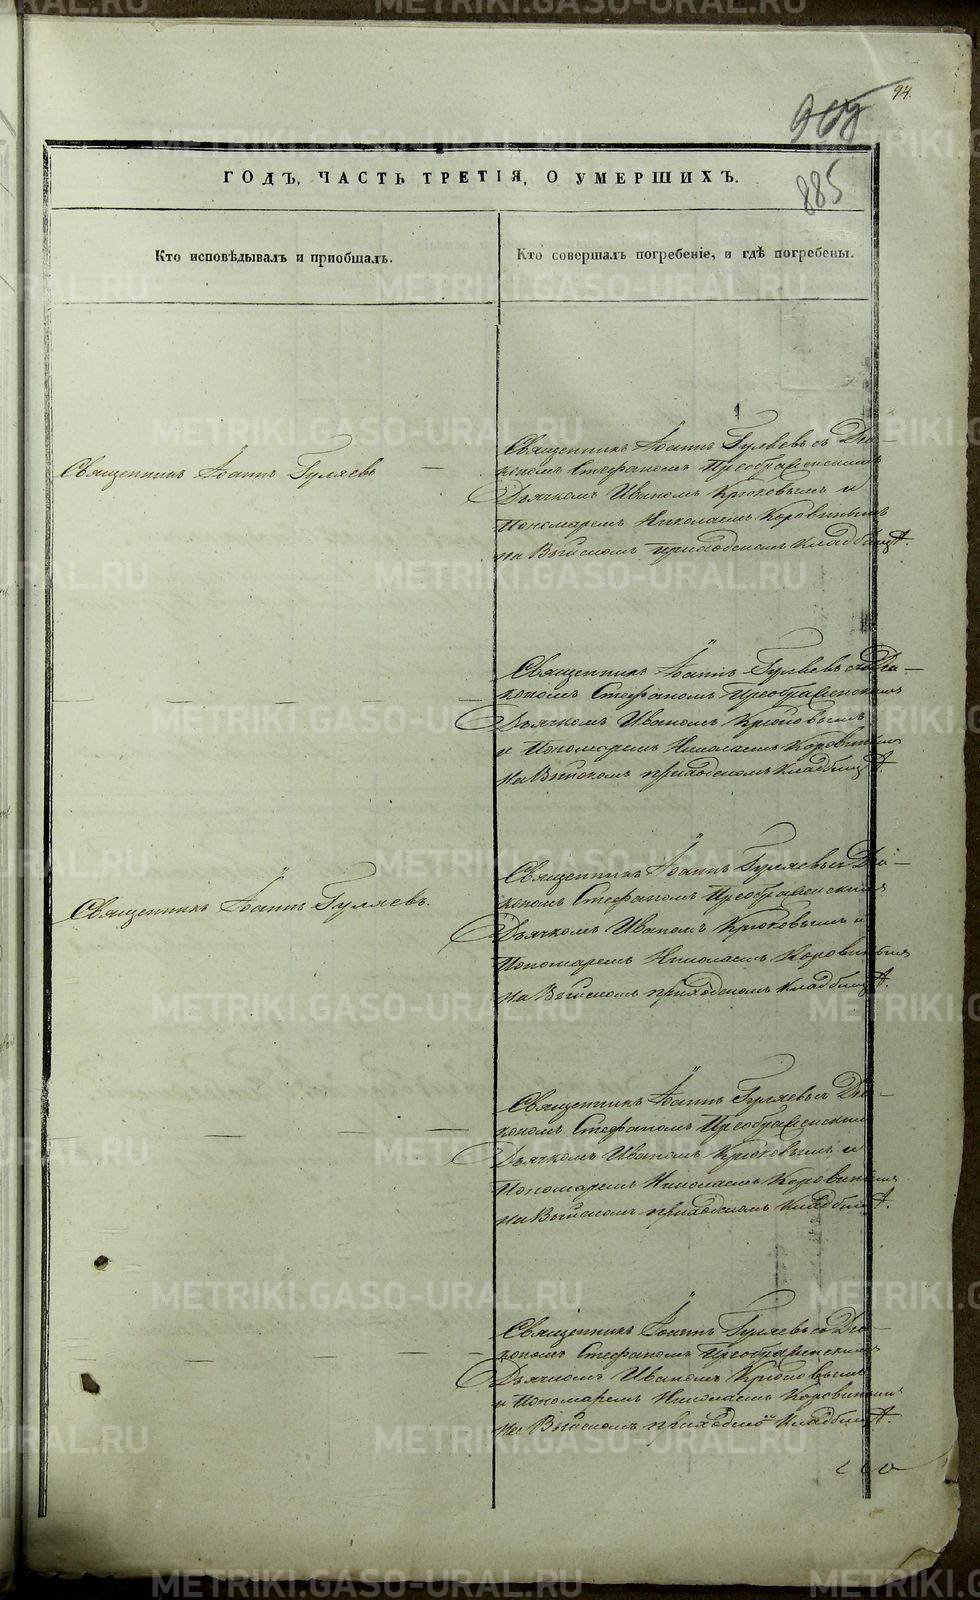 94.
885
ГОДЪ, ЧАСТЬ ТРЕТІЯ, О УМЕРШИХЪ.
Кто исповѣдывалъ и пріобщалъ.
Кто совершалъ погребеніе, и гдѣ погребены.
Священникъ Іоаннъ Гуляевъ
Священникъ Іоаннъ Гуляевъ съ Діа-
кономъ Стефаномъ Преображенскимъ
Дьячкомъ Иваномъ Крюковымъ и
Пономаремъ Николаемъ Коровинымъ
на Выйскомъ приходскомъ кладбищѣ.
Священникъ Іоаннъ Гуляевъ съ Діа-
кономъ Стефаномъ Преображенскимъ
Дьячкомъ Иваномъ Крюковымъ
и Пономаремъ Николаемъ Коровинымъ
на Выйскомъ приходскомъ кладбищѣ.
Священникъ Іоаннъ Гуляевъ.
Священникъ Іоаннъ Гуляевъ съ Діа-
кономъ Стефаномъ Преображенскимъ
Дьячкомъ Иваномъ Крюковымъ и
Пономаремъ Николаемъ Коровинымъ
на Выйскомъ приходскомъ кладбищѣ.
Священникъ Іоаннъ Гуляевъ съ Діа-
кономъ Стефаномъ Преображенскимъ
Дьячкомъ Иваномъ Крюковымъ и
Пономаремъ Николаемъ Коровинымъ
на Выйскомъ приходскомъ кладбищѣ.
Священникъ Іоаннъ Гуляевъ съ Діа-
кономъ Стефаномъ Преображенскимъ
Дьячкомъ Иваномъ Крюковымъ
и Пономаремъ Николаемъ Коровинымъ
на Выйскомъ приходскомъ кладбищѣ.
METRIKI.GASO-URAL.RU